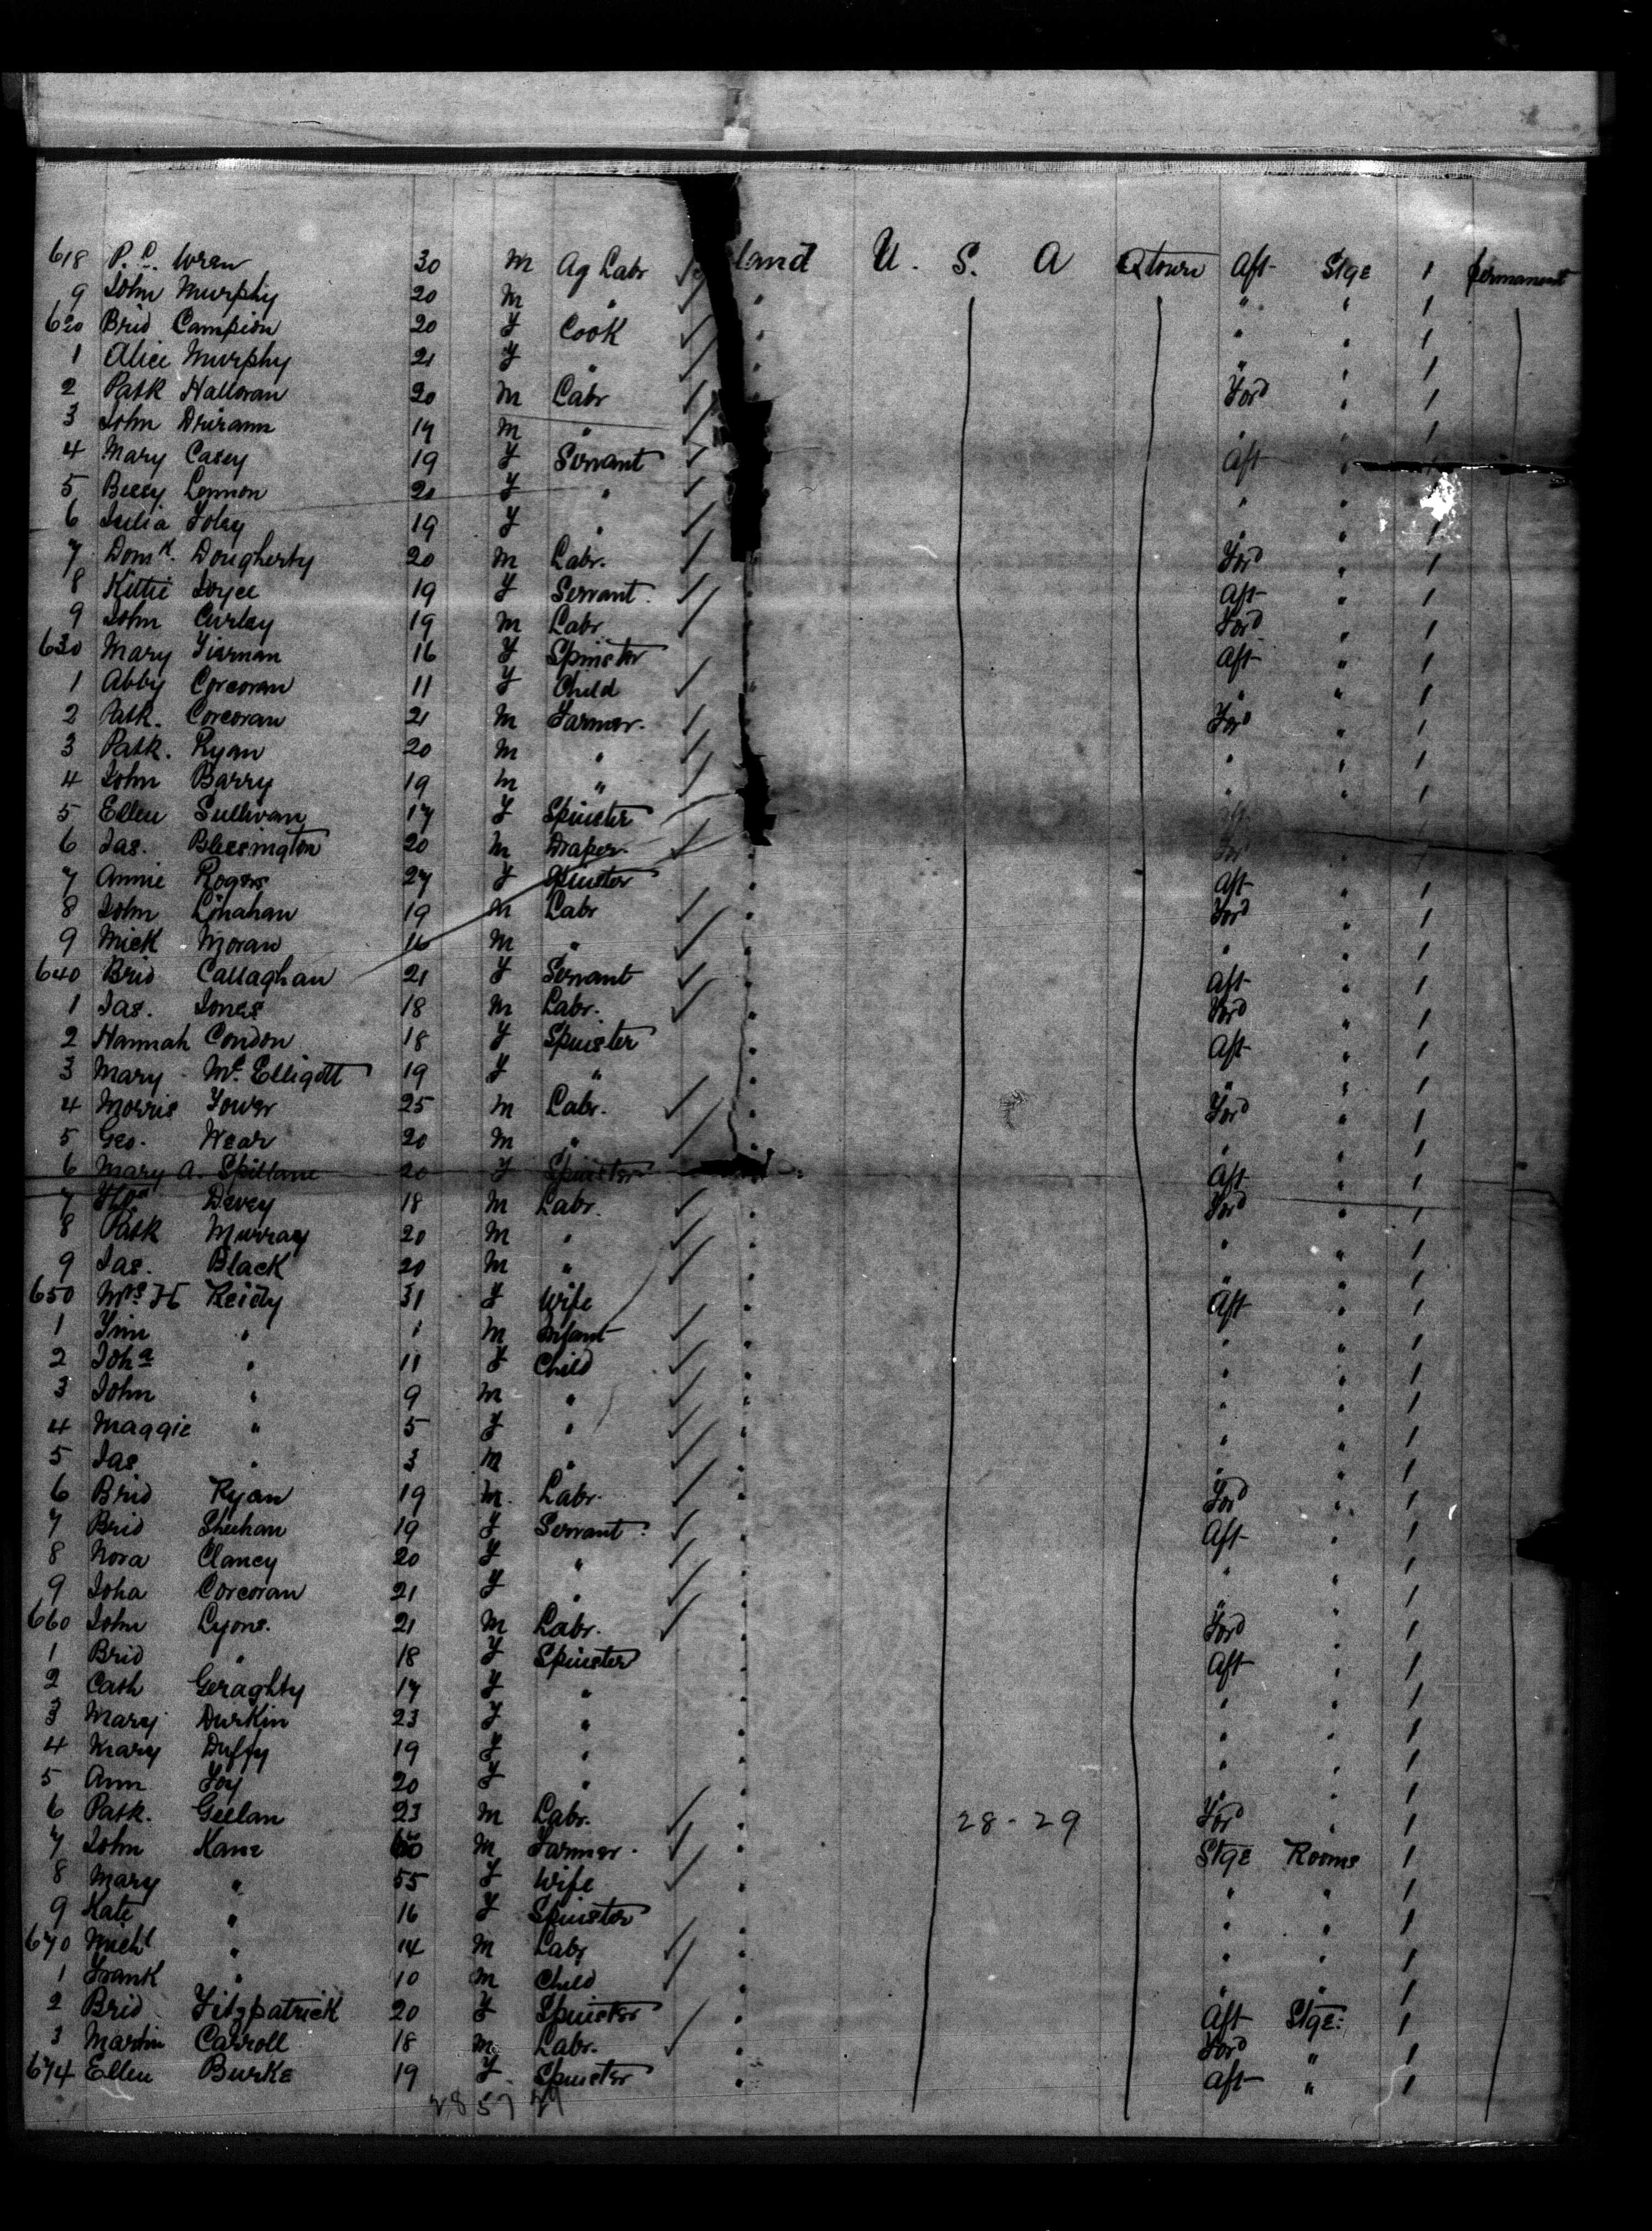 618 P. C. Wren 30 M Ag Labr land U. S. A Qtown Aft Stge 1 permanent
9 John Murphy 20 M " " " " 1
620 Brid Campion 20 F Cook " " " 1
1 Alice Murphy 21 F " " " " 1
2 Patk Halloran 20 M Labr Ford " 1
3 John 19 M " " " 1
4 Mary Casey 19 F Servant Aft " 1
5 Lennon 21 F " " " 1
6 Julia Foley 19 F " " " 1
7 Domk. Dougherty 20 M Labr. Ford " 1
8 Kittie Joyce 19 F Servant. " Aft " 1
9 John Curley 19 M Labr Ford " 1
630 Mary Tiernan 16 F Spinster Aft " 1
1 Abby Corcoran 11 F Child " " " 1
2 Patk. Corcoran 21 M Farmer. Ford " 1
3 Patk. Ryan 20 M " " " 1
4 John Barry 19 M " " " 1
5 Ellen Sullivan 17 F Spinster Aft
6 Jas. Blessington 20 M Draper. " For
7 Annie Rogers 27 F Spinster " Aft " 1
8 John Linahan 19 M Labr " Ford " 1
9 Mick Moran 16 M " " " " 1
640 Brid Callaghan 21 F Servant " Aft " 1
1 Jas. Jones 18 M Labr. " Ford " 1
2 Hannah Condon 18 F Spinster " Aft " 1
3 Mary Mc Elligott 19 F " " " " 1
4 Morris Fower 25 M Labr. " Ford " 1
5 Geo. Wear 20 M " " " " 1
6 Mary A. Spillane 20 F Spinster " Aft " 1
7 Devey 18 M Labr. " Ford " 1
8 Patk Murray 20 M " " " " 1
9 Jas. Black 20 M " " " " 1
650 Mrs H Reidy 31 F Wife " Aft " 1
1 Tim " 1 M Infant " " " 1
2 Joha " 11 F Child " " " 1
3 John " 9 M " " " " 1
4 Maggie " 5 F " " " " 1
5 Jas " 3 M " " " " 1
6 Brid Ryan 19 M. Labr. " Ford " 1
7 Brid Sheehan 19 F Servant. " Aft " 1
8 Nora Clancy 20 F " " " " 1
9 Joha Corcoran 21 F " " " " 1
660 John Lyons. 21 M Labr. " Ford " 1
1 Brid " 18 F Spinster " Aft " 1
2 Cath Geraghty 17 F " " " " 1
3 Mary Durkin 23 F " " " " 1
4 Mary Duffy 19 F " " " " 1
5 Ann Foy 20 F " " " " 1
6 Patk. Geelan 23 M Labr. " 28-29 Ford " 1
7 John Kane 60 M Farmer. " Stge Rooms 1
8 Mary " 55 F Wife " " " 1
9 Kate " 16 F Spinster " " " 1
670 Michl " 14 M Labr " " " 1
1 Frank " 10 M Child " " " 1
2 Brid Fitzpatrick 20 F Spinster " Aft Stge: 1
3 Martin Carroll 18 M Labr. " Ford " 1
674 Ellen Burke 19 F Spinster " Aft " 1
28 57